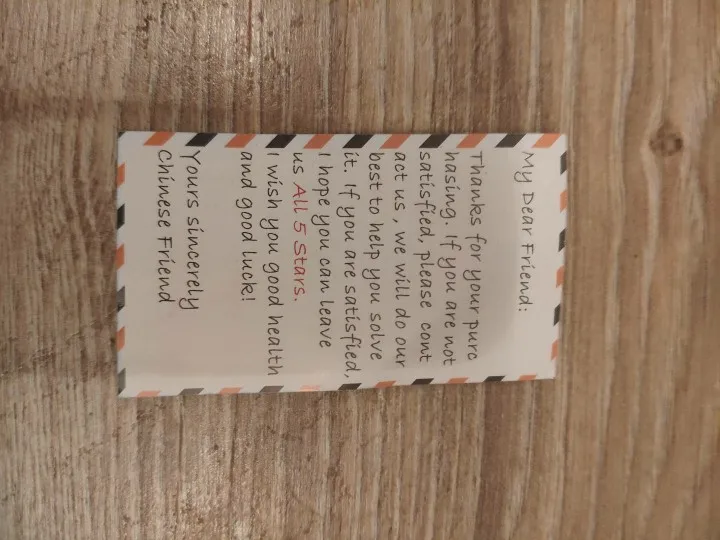 My Dear Friend:
Thanks for your purc
hasing. If you are not
satisfied, please cont
act us, we will do our
best to help you solve
it. If you are satisfied,
I hope you can leave
us All 5 Stars.
I wish you good health
and good luck!
Yours sincerely
Chinese Friend